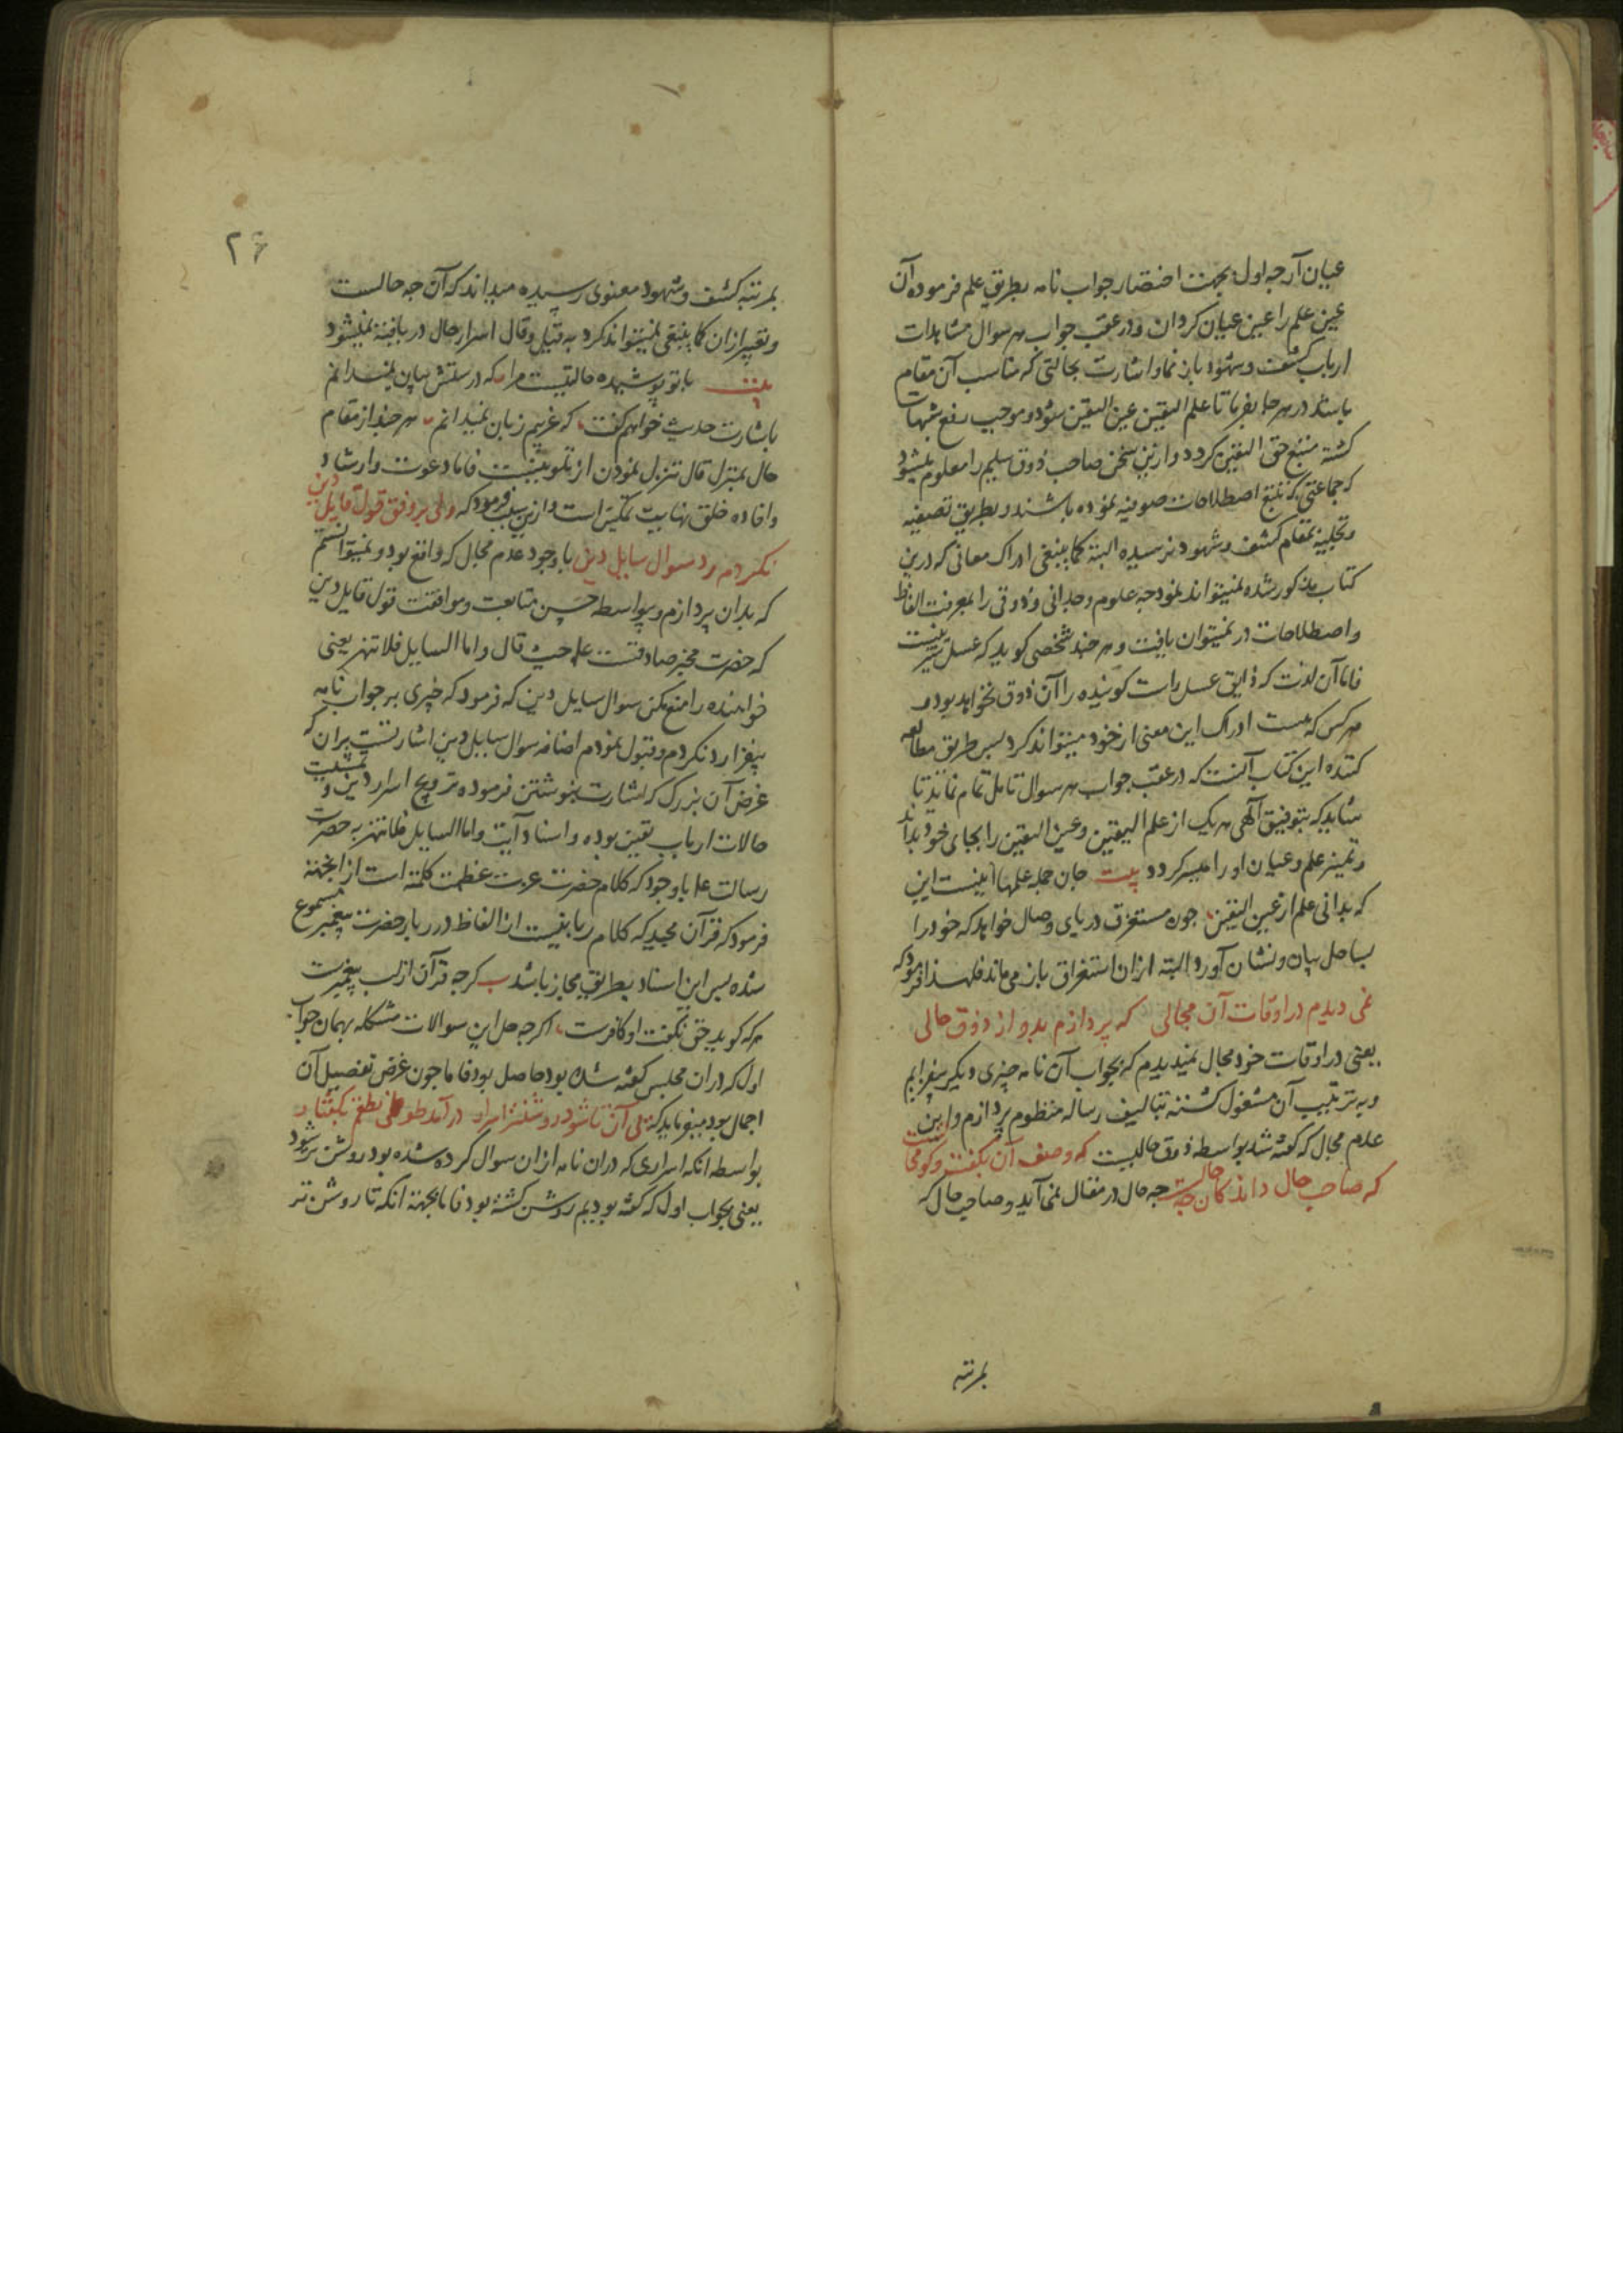 عیان آر چه اول بجهت اختصار جواب نامه بطریق علم فرموده آن
عین علم را عین عیان کردان و در عقب جواب هر سوال مشاهدات
ارباب کشف و شهود باز نما و اشارت بحالتی که مناسب آن مقام
باشد در هر جا بفرما تا علم الیقین عین الیقین شود و موجب رفع شبهات
کشته منتج حق الیقین کردد و ازین سخن صاحب ذوق سلیم را معلوم میشود
که جماعتی که تتبع اصطلاحات صوفیه نموده باشند و بطریق تصفیه
و تجلیه بمقام کشف و شهود نرسیده البته کما ینبغی ادراک معانی که درین
کتاب مذکور شده نمیتواند نمود چه علوم وجدانی و ذوقی را بمعرفت الفاظ
و اصطلاحات در نمیتوان یافت و هر چند شخصی کوید که عسل شیرینست
فاما آن لذت که ذایق عسل راست کوینده را آن ذوق نخواهد بود و
هر کس که هست ادراک این معنی از خود میتواند کرد پس طریق مطالعه
کننده این کتاب آنست که در عقب جواب هر سوال تامل تمام نماند تا
شاید که بتوفیق الهی هر یک از علم الیقین و عین الیقین را بجای خود بداند
و تمیز علم و عیان او را میسر کردد بیت جان جمله علمها اینست این
که بدانی علم از عین الیقین چون مستغرق دریای وصال خواهد که خود را
بساحل بیان و نشان آورد البته ازان استغراق باز می ماند فلهذا فرمود که
نمی دیدم در اوقات آن مجالی که پردازم بدو از ذوق حالی
یعنی در اوقات خود مجال نمیدیدم که بجواب آن نامه چیزی دیکر بیفزایم
و به ترتیب آن مشغول کشته بتالیف رساله منظوم پردازم و این
عدم مجال که کفته شد بواسطه ذوق حالیست که وصف آن بکفت و کو محالست
که صاحب حال داند کان چه حالست چه حال در مقال نمی آید و صاحب حال که
بمرتبه
۲۶
بمرتبه کشف و شهود معنوی رسیده میداند که آن چه حالست
و تعبیر ازان کما ینبغی نمیتواند کرد به قیل و قال اسرار حال دریافته نمیشود
بیت با تو پوشیده حالتیست مرا که درستش بیان نمیدانم
باشارت حدیث خواهم کفت که غریبم زبان نمیدانم هر چند از مقام
حال بمنزل قال تنزل نمودن از تلوینست فاما دعوت و ارشاد
و افاده خلق نهایت تمکین است و ازین سبب فرمود که ولی بر وفق قول قایل دین
نکردم رد سوال سایل دین با وجود عدم مجال که واقع بود و نمیتوانستم
که بدان پردازم و بواسطه حسن متابعت و موافقت قول قایل دین
که حضرت مخبر صادقست علم حیث قال و اما السایل فلا تنهر یعنی
خواهنده را منع مکن سوال سایل دین که فرمود که چیزی بر جواب نامه
بیفزا رد نکردم و قبول نمودم اضافه سوال سایل دین اشارتست بران که
غرض آن بزرک که اشارت بنوشتن فرموده ترویج اسرار دین و تمشیت
حالات ارباب یقین بوده و اسناد آیت و اما السایل فلا تنهر به حضرت
رسالت علم با وجود که کلام حضرت عزت عظمت کلمته است از انجهته
فرمود که قرآن مجید که کلام ربانیست ازالفاظ درر بار حضرت پیغمبر مسموع
شده پس این اسناد بطریق مجاز باشد ب کرچه قرآن از لب پیغمبرست
هر که کوید حق نکفت او کافرست اکرچه حل این سوالات مشکله بهمان جواب
اول که دران مجلس کفته شده بود حاصل بود فاما چون غرض تفصیل آن
اجمال بود میفرماید که بلی آن تا شود روشنتر اسرار در آمد طوطی نطقم بکفتار
بواسطه انکه اسراری که دران نامه ازان سوال کرده شده بود روشن تر شود
یعنی بجواب اول که کفته بودیم روشن کشته بود فاما بجهته انکه تا روشن تر